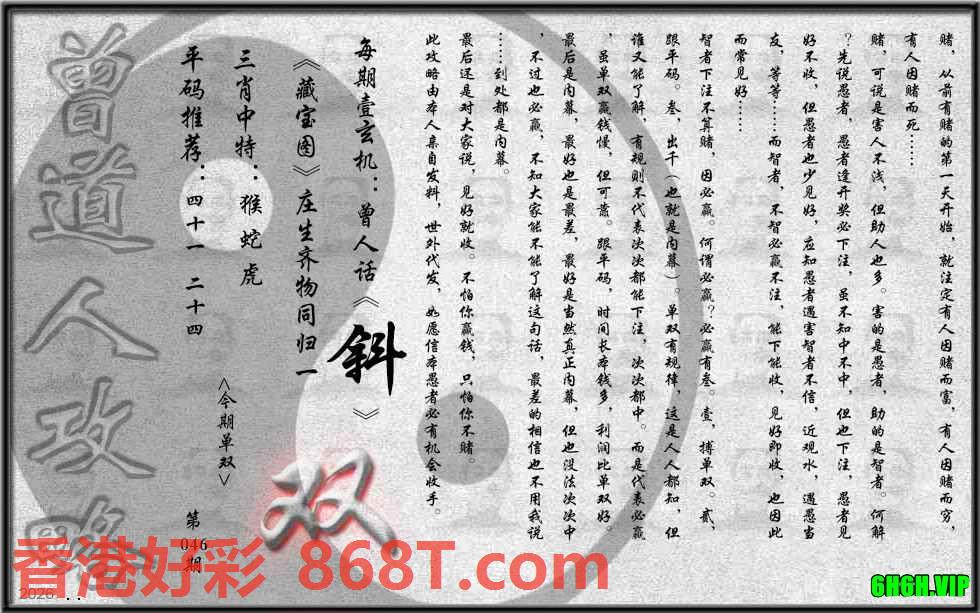 赌，从前有赌的第一天开始，就注定有人因赌而富，有人因赌而穷，
有人因赌而死……
赌，可说是害人不浅，但助人也多。害的是愚者，助的是智者。何解
？先说愚者，愚者逢开奖必下注，虽不知中不中，但也下注，愚者见
好不收，但愚者也少见好，应知愚者遇害智者不信，近观水，遇愚当
友，等等……而智者，不智必赢不注，能下能收，见好即收，也因此
而常见好……
智者下注不算赌，因必赢。何谓必赢？必赢有叁。壹，搏单双。贰，
跟平码。叁，出千（也就是内幕）。单双有规律，这是人人都知，但
谁又能了解，有规则不代表次次都能下注，次次都中。而是代表必赢
，虽单双赢钱慢，但可靠。跟平码，时间长本钱多，利润比单双好。
最后是内幕，最好也是最差，最好是当然真正内幕，但也没法次次中
，不过也必赢，不知大家能不能了解这句话，最差的相信也不用我说
……到处都是内幕。
最后还是对大家说，见好就收。不怕你赢钱，只怕你不赌。
此攻略由本人亲自发料，世外代发，如愿信本愚者必有机会收手。
每期壹玄机：曾人话《斜》
《藏宝图》庄生齐物同归一
三肖中特：猴蛇虎
平码推荐：四十一 二十四
<今期单双>
双
第046期
曾道人攻略
香港好彩 868T.com
2026
6H6H.VIP